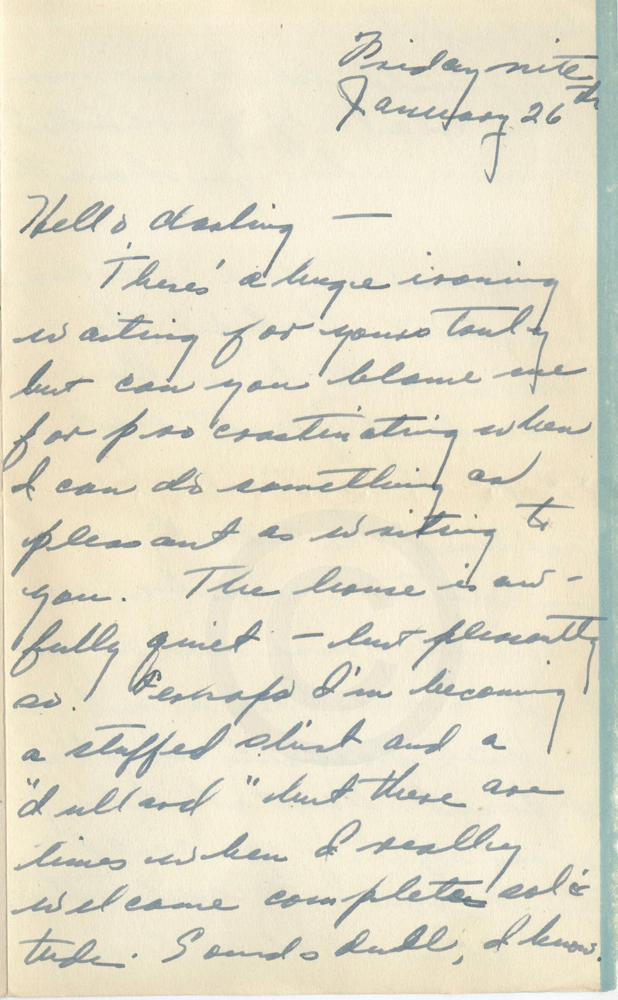 Friday nite
January 26th
Hello darling —
There's a huge ironing
waiting for yours truly
but can you blame me
for procrastinating when
I can do something as
pleasant as writing to
you. The house is aw-
fully quiet – but pleasantly
so. Perhaps I'm becoming
a stuffed shirt and a
"dullard" but there are
times when I really
welcome complete soli-
tude. Sounds dull, I know.